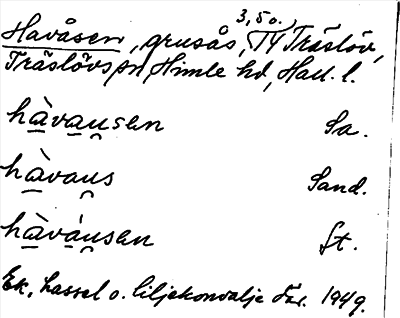 3,5 o.
Havåsen, grusås, TY Träslöv,
Träslövs sn, Himle hd, Hall. l.
hàvau̯sen Sa.
hàvau̯s Sand.
hàváu̯sen ft.
Ek, hassel o. liljekonvalje där. 1949.